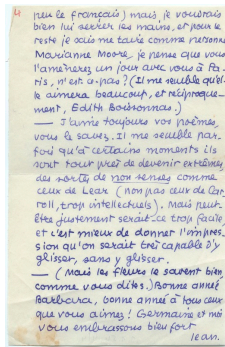 4
peu le français) mais je voudrais
bien lui serrer les mains, et pour le
reste je sais me taire comme personne
Marianne Moore, je pense que vous
l'amènerez un jour avec vous à Pa-
ris, n'est-ce-pas? (Il me semble qu'elle
aimera beaucoup, et réciproque-
ment, Edith Boissonnas.)
— J'aime toujours vos poèmes,
vous le savez. Il me semble par-
fois qu'à certains moments ils
sont tout près de devenir extrêmes,
des sorts de non senses comme
ceux de Lear (non pas ceux de Car-
roll, trop intellectuels). Mais peut-
être justement serait-ce trop facile
et c'est mieux de donner l'impres-
sion qu'on serait très capable d'y
glisser, sans y glisser.
— (Mais les fleurs le savent bien
comme vous dites.) Bonne année
Barbara, bonne année à tous ceux
que vous aimez! Germaine et moi
vous embrassons bien fort
Jean.